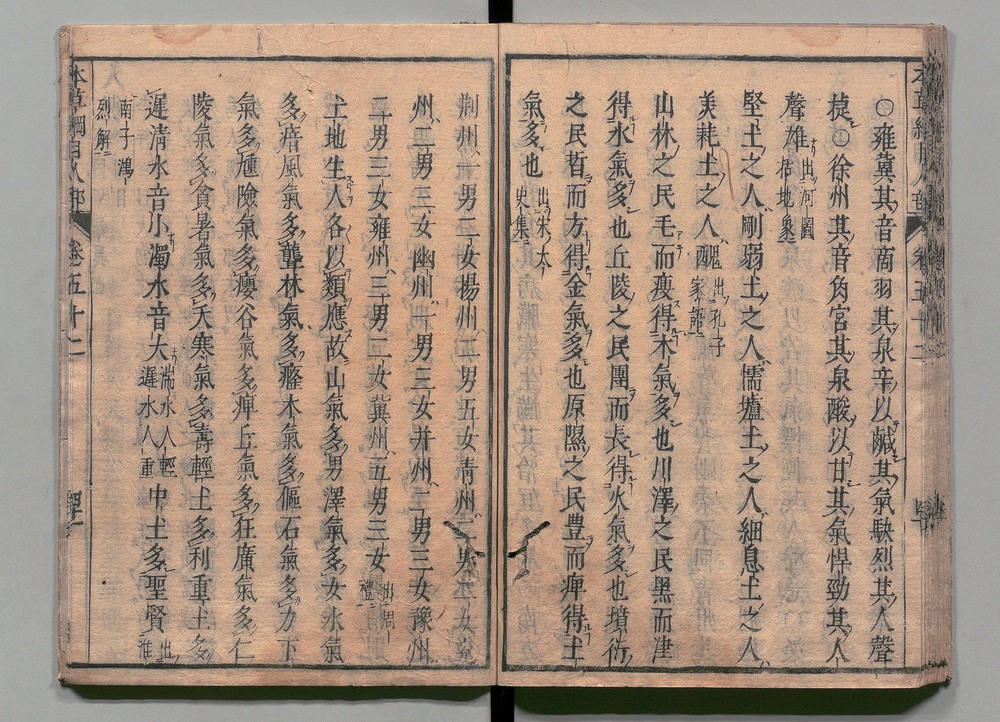 ○雍冀其音商羽其泉辛以鹹其氣駃烈其人聲
㨗○徐州其音角宮其泉酸以甘其氣悍勁其人
聲雄出河圖括地象
堅土之人剛弱土之人懦壚土之人細息土之人
美耗土之人醜出孔子家語
山林之民毛而瘦得木氣多也川澤之民黑而津
得水氣多也丘陵之民團而長得火氣多也墳衍
之民晳而方得金氣多也原隰之民豊而痺得土
氣多也出宋太史集
荆州一男二女揚州二男五女靑州二男三女兗
州二男三女幽州一男三女并州二男三女豫州
二男三女雍州三男二女冀州五男三女出周禮
土地生人各以類應故山氣多男澤氣多女水氣
多瘖風氣多聾林氣多癃木氣多傴石氣多力下
氣多尰險氣多癭谷氣多痺丘氣多狂廣氣多仁
陵氣多貪暑氣多夭寒氣多壽輕土多利重土多
遲淸水音小濁水音大湍水人輕遲水人重中土多聖賢出淮
南子鴻烈解
本草綱目人部
卷五十二